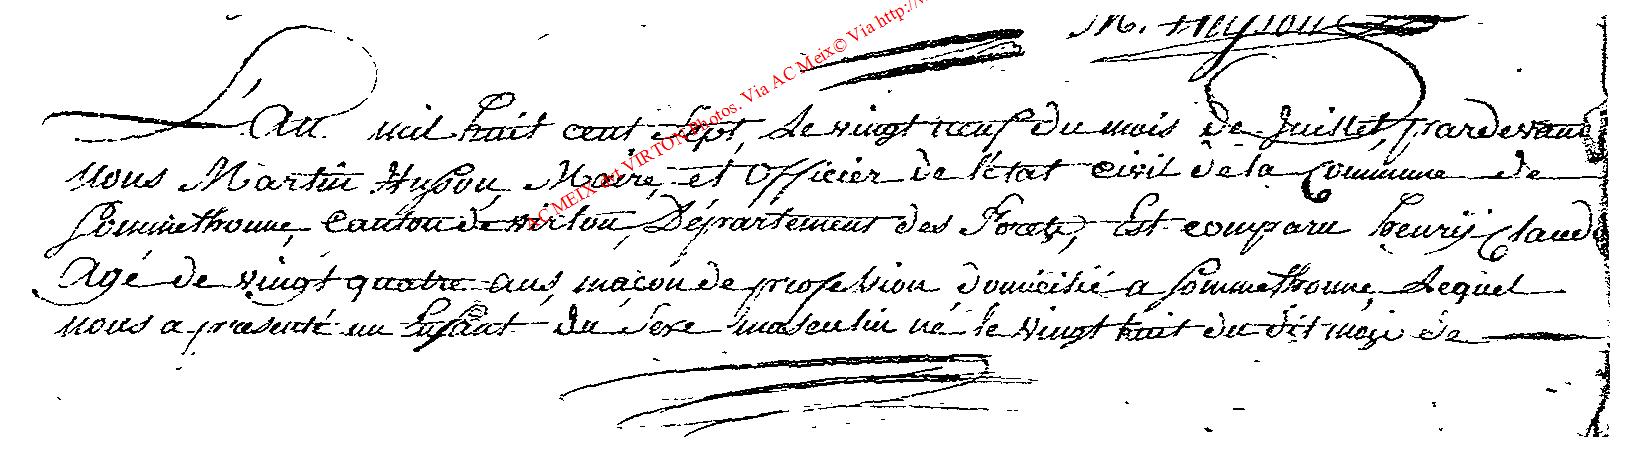 M. Husson
AC MEIX dit VIRTON Photos. Via AC Meix© Via http://
L'an mil huit cent sept, le vingt neuf du mois de Juillet, pardevant
nous Martin Husson, Maire, et officier de l'état civil de la Commune de
Sommethonne, Canton de virton, Département des Forets, Est comparu henrÿ Claude
agé de vingt quatre ans, maçon de profession domicilié a Sommethonne, Lequel
nous a presenté un Enfant du Sexe masculin né le vingt huit du dit mois de